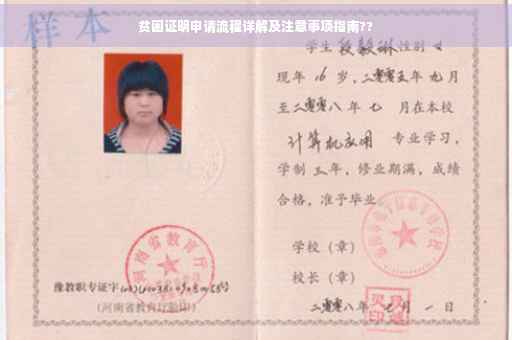 贫困证明申请流程详解及注意事项指南??
样本
学生 段毅琳 性别 女
现年 16 岁,二零零五年 九 月
至二零零八年 七 月在本校
计算机应用 专业学习,
学制 三 年,修业期满,成绩
合格,准予毕业
学校(章)
校长(章)
二零零八年 七 月 一 日
河南省教育厅
豫教职专证字
(河南省教育厅验印)